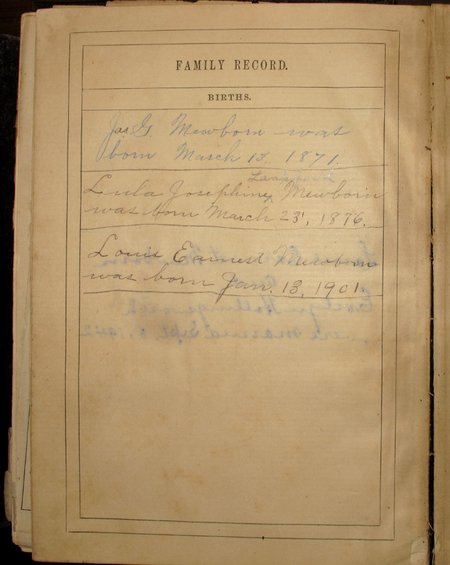 FAMILY RECORD.
BIRTHS.
Jas G. Mewborn was
born March 13, 1871.
Lula Josephine Mewborn
was born March 23, 1876.
Louis Earnest Mewborn
was born Jan. 13, 1901.